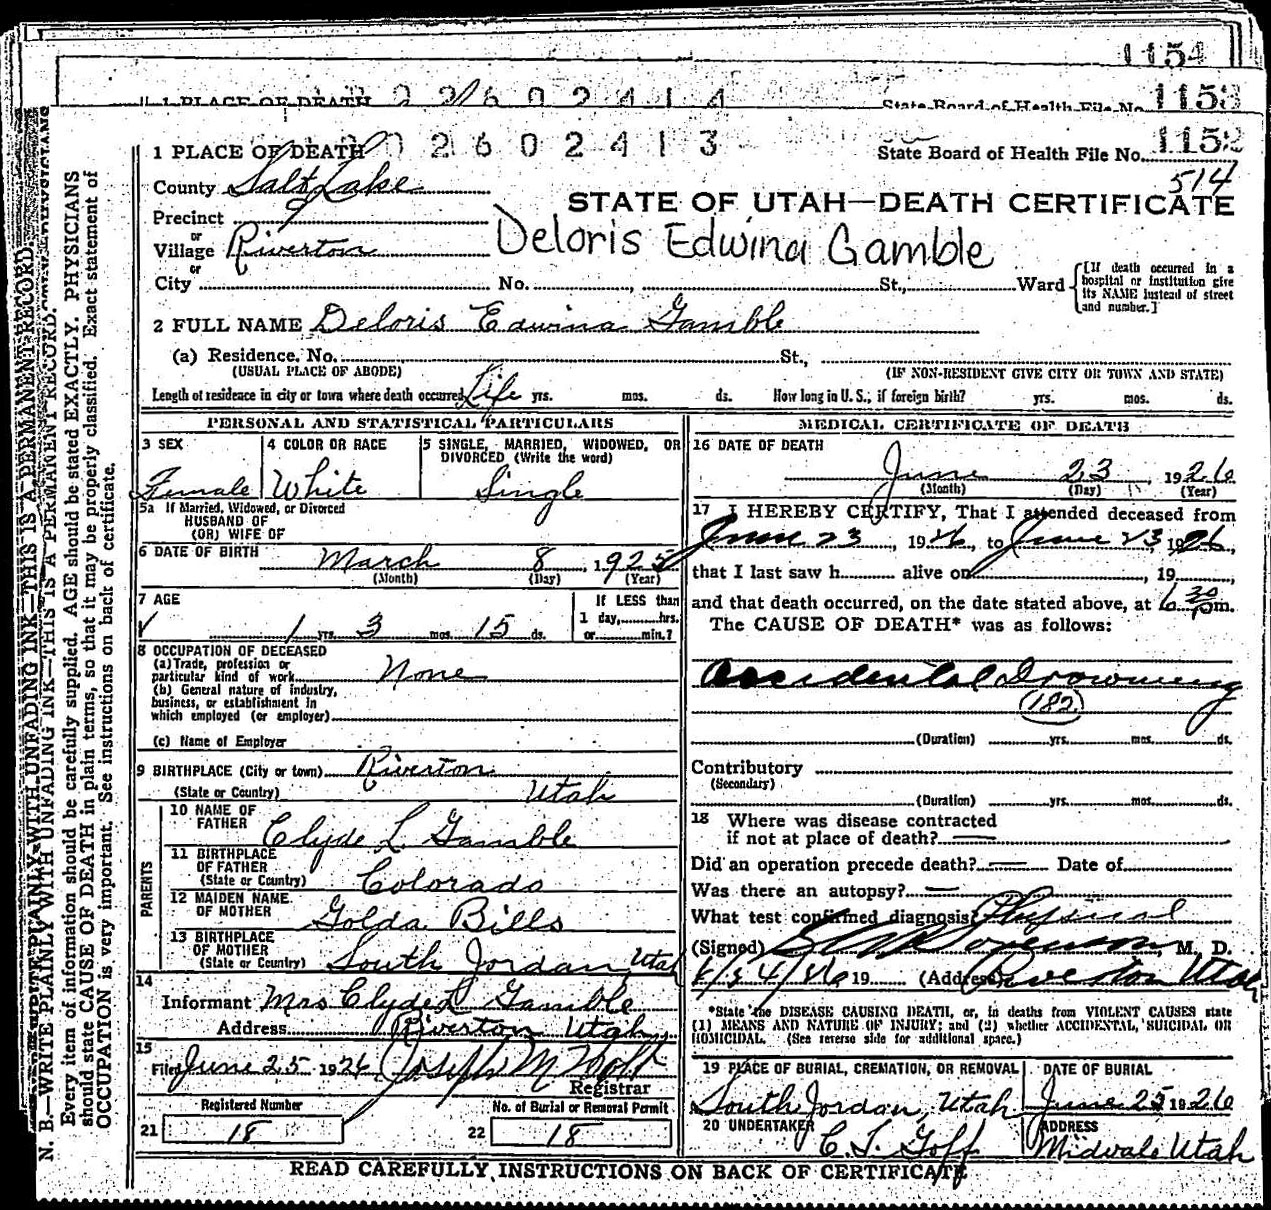 1154
1 PLACE OF DEATH 2 2 6 0 2 4 1 4 State Board of Health File No. 1153
0 2 6 0 2 4 1 3
1 PLACE OF DEATH State Board of Health File No. 1152
514
County Salt Lake
STATE OF UTAH—DEATH CERTIFICATE
Precinct
or
Village Riverton
Deloris Edwina Gamble
or
City No. St., Ward [If death occurred in a hospital or institution give its NAME instead of street and number.]
2 FULL NAME Deloris Edwina Gamble
(a) Residence. No. St.,
(USUAL PLACE OF ABODE) (IF NON-RESIDENT GIVE CITY OR TOWN AND STATE)
Length of residence in city or town where death occurred Life yrs. mos. ds. How long in U. S., if foreign birth? yrs. mos. ds.
PERSONAL AND STATISTICAL PARTICULARS
3 SEX Female
4 COLOR OR RACE White
5 SINGLE, MARRIED, WIDOWED, OR DIVORCED (Write the word) Single
5a If Married, Widowed, or Divorced
HUSBAND OF
(OR) WIFE OF
6 DATE OF BIRTH March 8, 1925
(Month) (Day) (Year)
7 AGE
1 yrs. 3 mos. 15 ds.
If LESS than
1 day, hrs.
or min.?
8 OCCUPATION OF DECEASED
(a) Trade, profession or
particular kind of work None
(b) General nature of industry,
business, or establishment in
which employed (or employer)
(c) Name of Employer
9 BIRTHPLACE (City or town) Riverton
(State or Country) Utah
PARENTS
10 NAME OF
FATHER Clyde L. Gamble
11 BIRTHPLACE
OF FATHER
(State or Country) Colorado
12 MAIDEN NAME
OF MOTHER Golda Bills
13 BIRTHPLACE
OF MOTHER
(State or Country) South Jordan, Utah
14
Informant Mrs Clyde L Gamble
Address Riverton Utah
15
Filed June 25 1926 Joseph M
Registrar
Registered Number
21 18
No. of Burial or Removal Permit
22 18
MEDICAL CERTIFICATE OF DEATH
16 DATE OF DEATH
June 23, 1926
(Month) (Day) (Year)
17 I HEREBY CERTIFY, That I attended deceased from
June 23, 1926, to June 23, 1926,
that I last saw h alive on , 19 ,
and that death occurred, on the date stated above, at 6 30 p m.
The CAUSE OF DEATH* was as follows:
Accidental Drowning
(182)
(Duration) yrs. mos. ds.
Contributory
(Secondary)
(Duration) yrs. mos. ds.
18 Where was disease contracted
if not at place of death? —
Did an operation precede death? — Date of
Was there an autopsy? —
What test confirmed diagnosis? Physical
(Signed) Sorenson, M. D.
19 (Address) Riverton Utah
*State the DISEASE CAUSING DEATH, or, in deaths from VIOLENT CAUSES state
(1) MEANS AND NATURE OF INJURY; and (2) whether ACCIDENTAL, SUICIDAL OR
HOMICIDAL. (See reverse side for additional space.)
19 PLACE OF BURIAL, CREMATION, OR REMOVAL
South Jordan, Utah
DATE OF BURIAL
June 25 1926
20 UNDERTAKER
Goff
ADDRESS
Midvale Utah
READ CAREFULLY INSTRUCTIONS ON BACK OF CERTIFICATE
N. B.—WRITE PLAINLY WITH UNFADING INK—THIS IS A PERMANENT RECORD.
Every item of information should be carefully supplied. AGE should be stated EXACTLY. PHYSICIANS
should state CAUSE OF DEATH in plain terms, so that it may be properly classified. Exact statement of
OCCUPATION is very important. See instructions on back of certificate.